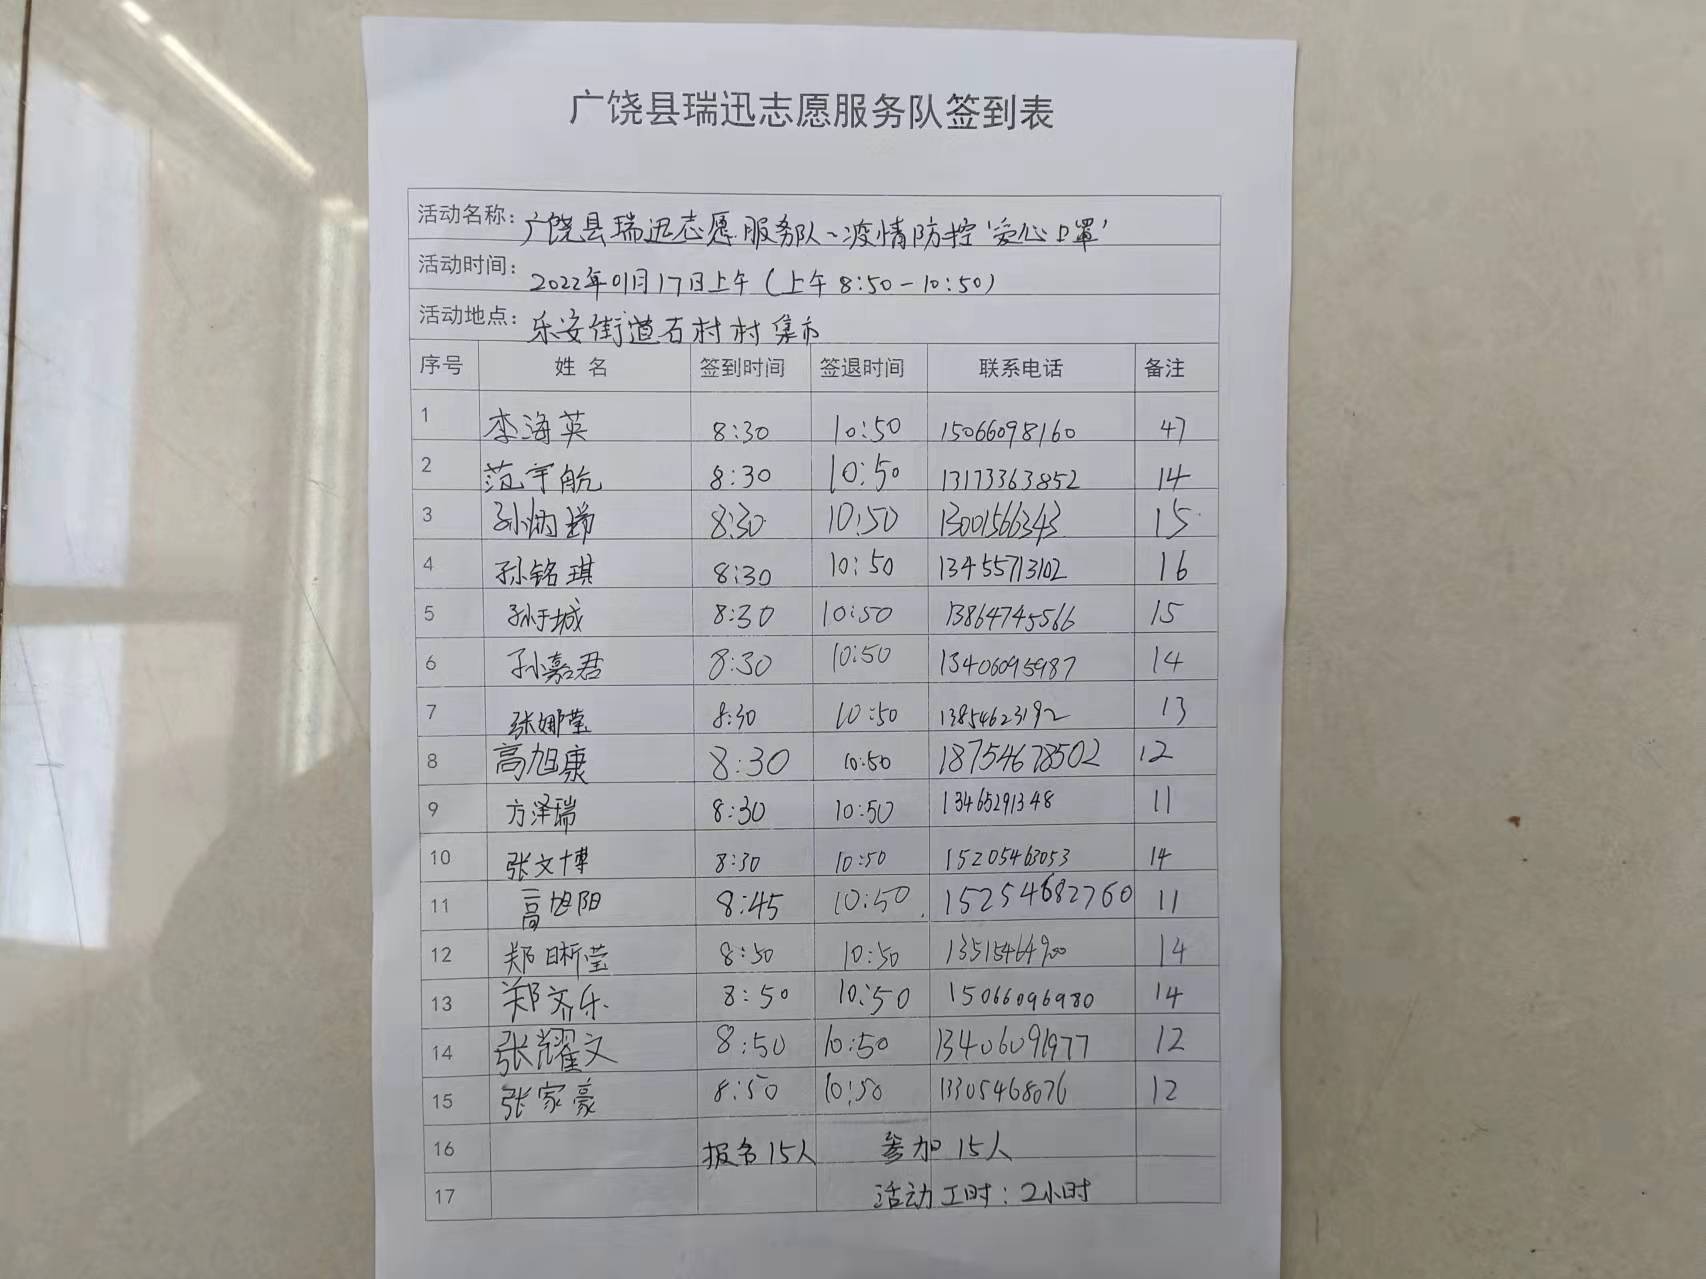 广饶县瑞迅志愿服务队签到表
活动名称：广饶县瑞迅志愿服务队~疫情防控'爱心口罩'
活动时间：2022年01月17日上午（上午8:50-10:50）
活动地点：乐安街道石村村集市
序号 姓名 签到时间 签退时间 联系电话 备注
1 李海英 8:30 10:50 15066098160 47
2 范宇航 8:30 10:50 13173363852 14
3 孙炳瑞 8:30 10:50 13001566343 15
4 孙铭琪 8:30 10:50 13455713102 16
5 孙于城 8:30 10:50 13864745566 15
6 孙嘉君 8:30 10:50 13406095987 14
7 张娜莹 8:30 10:50 13854623192 13
8 高旭康 8:30 10:50 18754678502 12
9 方泽瑞 8:30 10:50 13465291348 11
10 张文博 8:30 10:50 15205463053 14
11 高旭阳 8:45 10:50 15254682760 11
12 郑晰莹 8:50 10:50 13515464900 14
13 郑齐乐 8:50 10:50 15066096980 14
14 张耀文 8:50 10:50 13406091977 12
15 张家豪 8:50 10:50 13305468076 12
16 报名15人 参加15人
17 活动工时：2小时